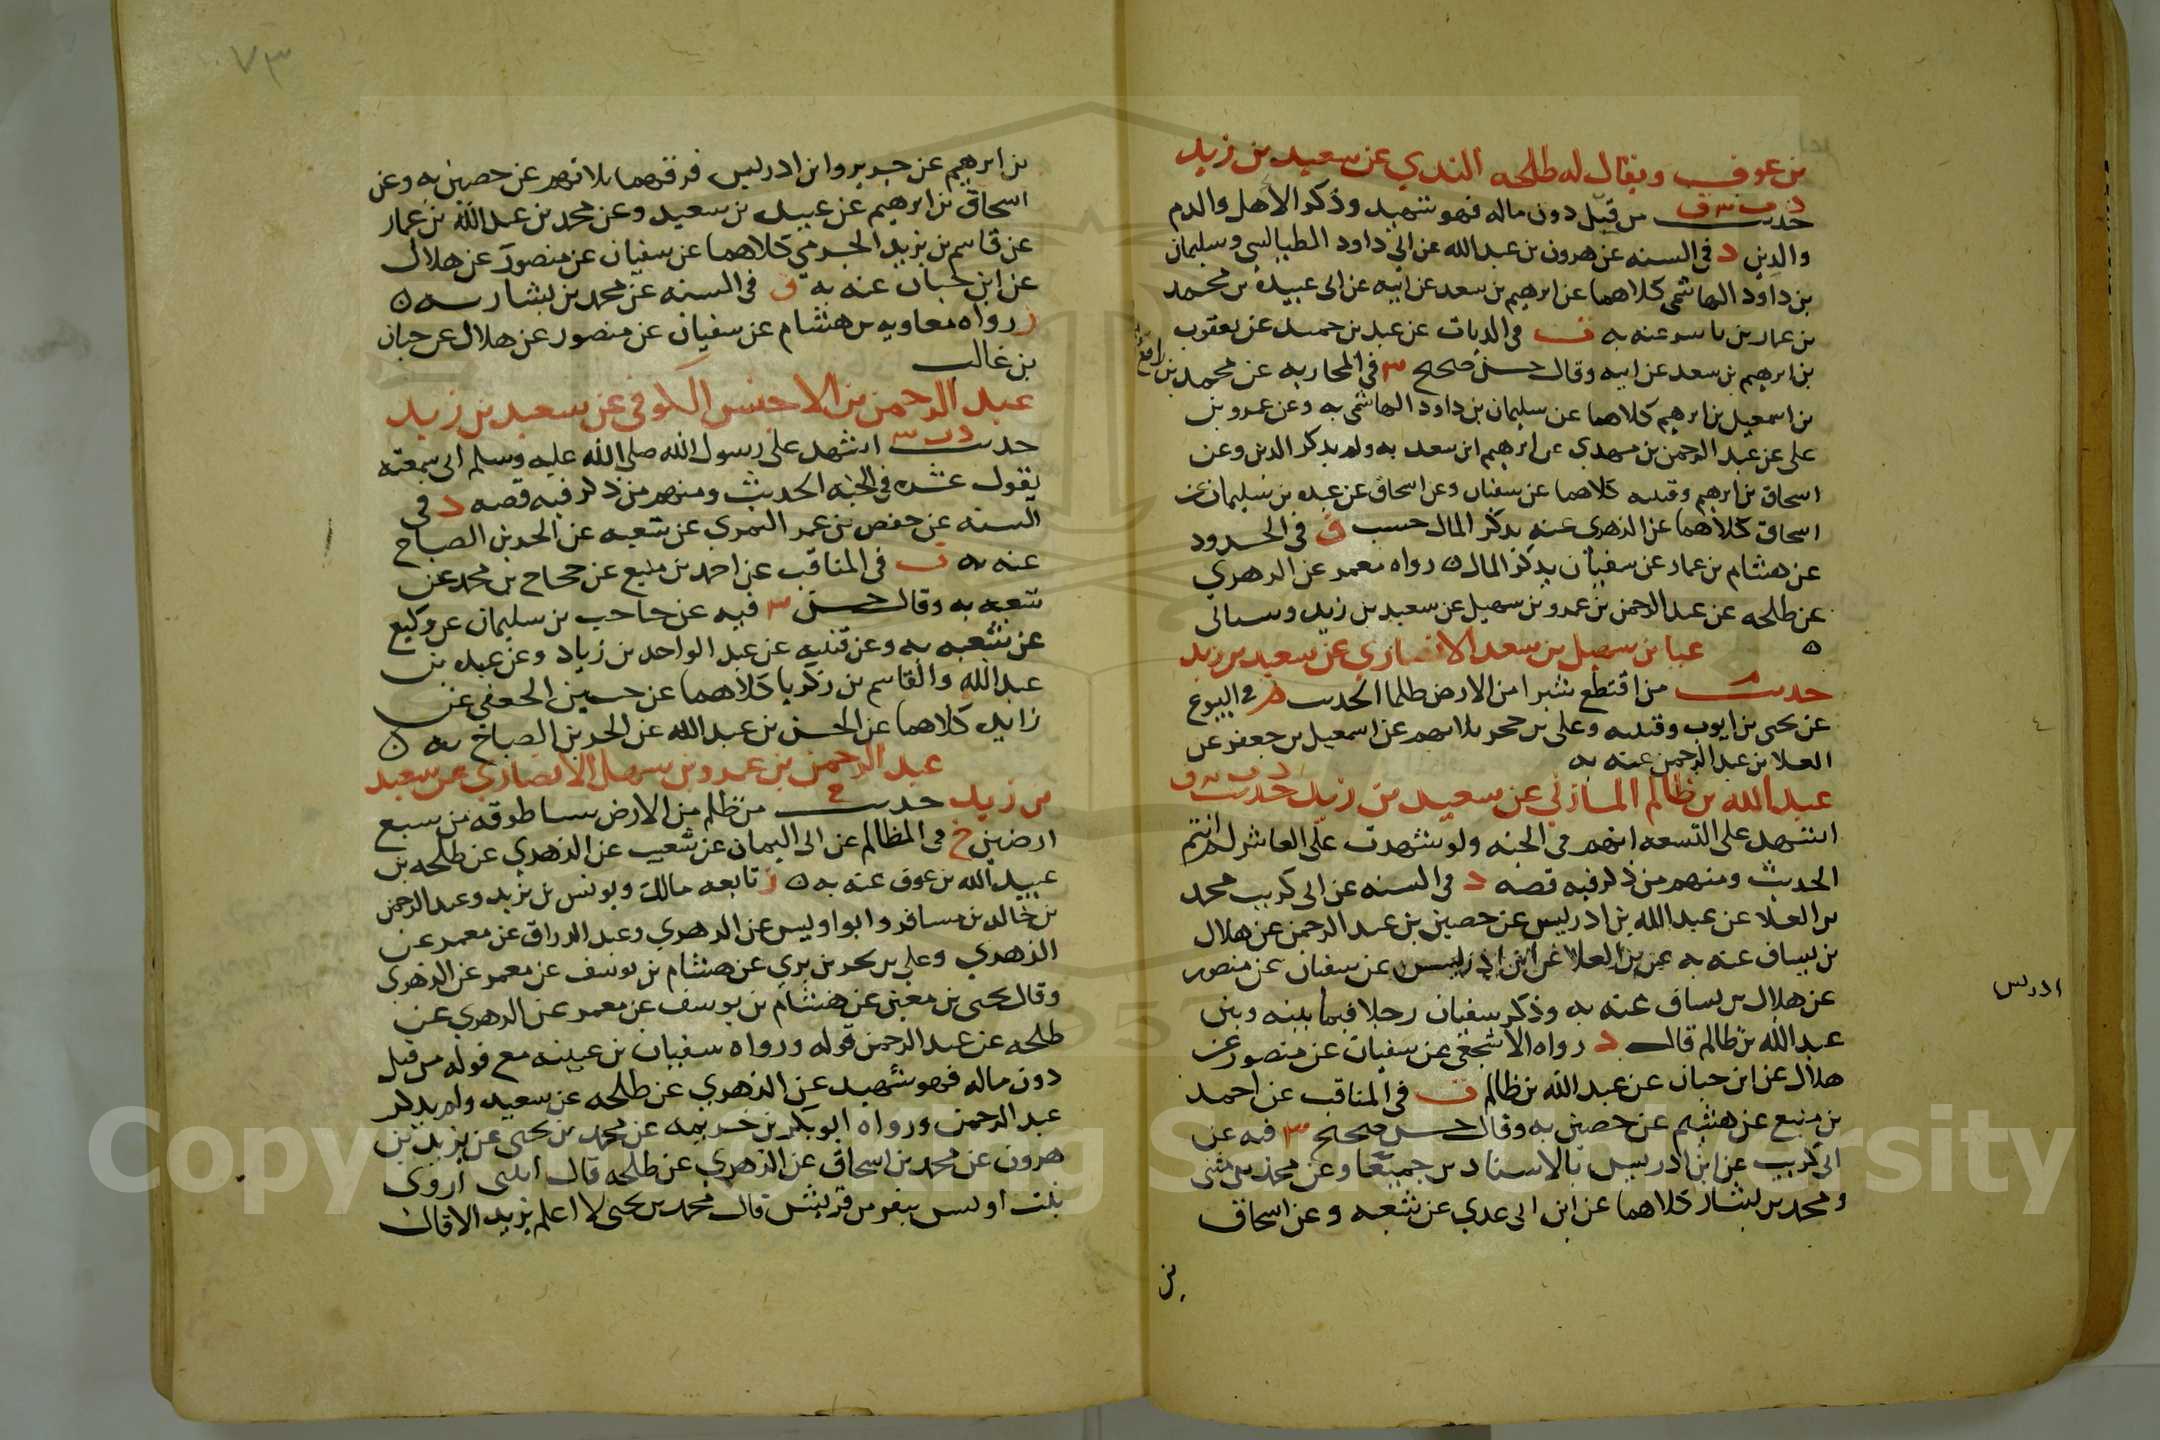 بن عوف ويقال له طلحه الندي عن سعيد بن زيد
د ت س ق
حديث من قتل دون ماله فهو شهيد وذكر الاهل والدم
والدين د فى السنه عن هرون بن عبد الله عن ابي داود الطيالسي وسليمان
بن داود الهاشمى كلاهما عن ابرهيم بن سعد عن ابيه عن ابى عبيده بن محمد
بن عمار بن ياسر عنه به ت فى الديات عن عبد بن حميد عن يعقوب
بن ابرهيم بن سعد عن ابيه وقال حسن صحيح س فى المحاربه عن محمد بن رافع
بن اسمعيل بن ابرهيم كلاهما عن سليمان بن داود الهاشمى به وعن عمرو بن
على عن عبد الرحمن بن مهدي عن ابرهيم ابن سعد به ولم يذكر الدين وعن
اسحاق بن ابرهيم وقتيبه كلاهما عن سفيان وعن اسحاق عن عبده بن سليمان عن
اسحاق كلاهما عن الزهرى عنه بذكر المال حسب ق فى الحدود
عن هشام بن عمار عن سفيان بذكر المال ه رواه معمر عن الزهري
عن طلحه عن عبد الرحمن بن عمرو بن سهيل عن سعيد بن زيد وسياتى
ه عباس بن سهيل بن سعد الانصاري عن سعيد بن زيد
حديث م من اقتطع شبرا من الارض ظلما الحديث م فى البيوع
عن يحيى بن ايوب وقتيبه وعلى بن حجر ثلاثهم عن اسمعيل بن جعفر عن
العلا بن عبد الرحمن عنه به
عبد الله بن ظالم المازني عن سعيد بن زيد حديث د ت س ق
اشهد على التسعه انهم فى الجنه ولو شهدت على العاشر لم اثم
الحديث ومنهم من ذكر فيه قصه د فى السنه عن ابى كريب محمد
بن العلا عن عبد الله بن ادريس عن حصين بن عبد الرحمن عن هلال
بن يساف عنه به عن بن العلا عن ابن ادريس عن سفيان عن منصور
ادريس
عن هلال بن يساف عنه به وذكر سفيان رجلا فيما بينه وبين
عبد الله بن ظالم قال د رواه الاشجعى عن سفيان عن منصور عن
هلال عن ابن حيان عن عبد الله بن ظالم ت فى المناقب عن احمد
بن منيع عن هشيم عن حصين به وقال حسن صحيح س فيه عن
ابى كريب عن ابن ادريس بالاسنادين جميعا وعن محمد بن مثنى
ومحمد بن بشار كلاهما عن ابن ابى عدي عن شعبه وعن اسحاق
بن
٧٣
بن ابرهيم عن جرير وابن ادريس فرقهما ثلاثهم عن حصين به وعن
اسحاق بن ابرهيم عن عبيد بن سعيد وعن محمد بن عبد الله بن عمار
عن قاسم بن يزيد الجرمي كلاهما عن سفيان عن منصور عن هلال
عن ابن حيان عنه به ق فى السنه عن محمد بن بشار به ه
ز رواه معاويه بن هشام عن سفيان عن منصور عن هلال عن حيان
بن غالب
عبد الرحمن بن الاخنس الكوفى عن سعيد بن زيد
حديث د ت س اشهد على رسول الله صلى الله عليه وسلم انى سمعته
يقول عشره فى الجنه الحديث ومنهم من ذكر فيه قصه د فى
السنه عن حفص بن عمر النمري عن شعبه عن الحر بن الصباح
عنه به ت فى المناقب عن احمد بن منيع عن حجاج بن محمد عن
شعبه به وقال حسن س فيه عن حاجب بن سليمان عن وكيع
عن شعبه به وعن قتيبه عن عبد الواحد بن زياد وعن عبده بن
عبد الله والقاسم بن زكريا كلاهما عن حسين الجعفى عن
زايده كلاهما عن الحسن بن عبد الله عن الحر بن الصباح به ه
عبد الرحمن بن عمرو بن سهل الانصاري عن سعيد
بن زيد حديث خ من ظلم من الارض شيا طوقه من سبع
ارضين خ فى المظالم عن ابى اليمان عن شعيب عن الزهري عن طلحه بن
عبيد الله بن عوف عنه به ه ز تابعه مالك ويونس بن يزيد وعبد الرحمن
بن خالد بن مسافر وابو اويس عن الزهري وعبد الرزاق عن معمر عن
الزهري وعلى بن بحر بن بري عن هشام بن يوسف عن معمر عن الزهرى
وقال يحيى بن معين عن هشام بن يوسف عن معمر عن الزهري عن
طلحه عن عبد الرحمن قوله ورواه سفيان بن عيينه مع قوله من قتل
دون ماله فهو شهيد عن الزهري عن طلحه عن سعيد ولم يذكر
عبد الرحمن ورواه ابو بكر بن خزيمه عن محمد بن يحيى عن يزيد بن
هرون عن محمد بن اسحاق عن الزهري عن طلحه قال اتتنى اروى
بنت اويس بنفر من قريش قال محمد بن يحيى لا اعلم يزيد الا قال
Copyright © King Saud University